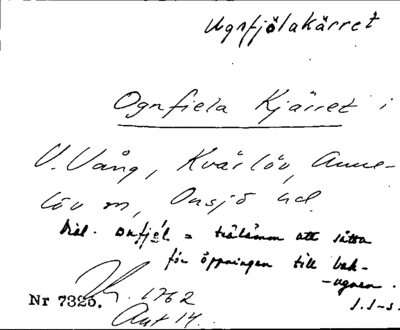 Ugnfjölakärret
Ognfiela Kjärret i
V. Vång, Kvärlöv, Anne-
löv m, Onsjö hd.
Dial. onfjel = trälämm att sätta
för öppningen till bak-
-ugnen.
Nr 7325. 1762 S.S-s.
Akt 14.